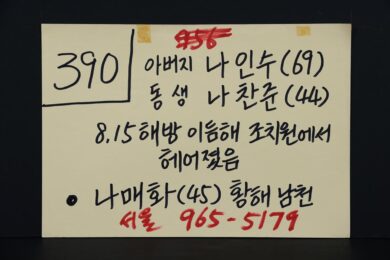 956
390
아버지 나인수(69)
동생 나찬준(44)
8.15해방 이듬해 조치원에서
헤어졌음
• 나매화(45) 황해 남천
서울 965-5179